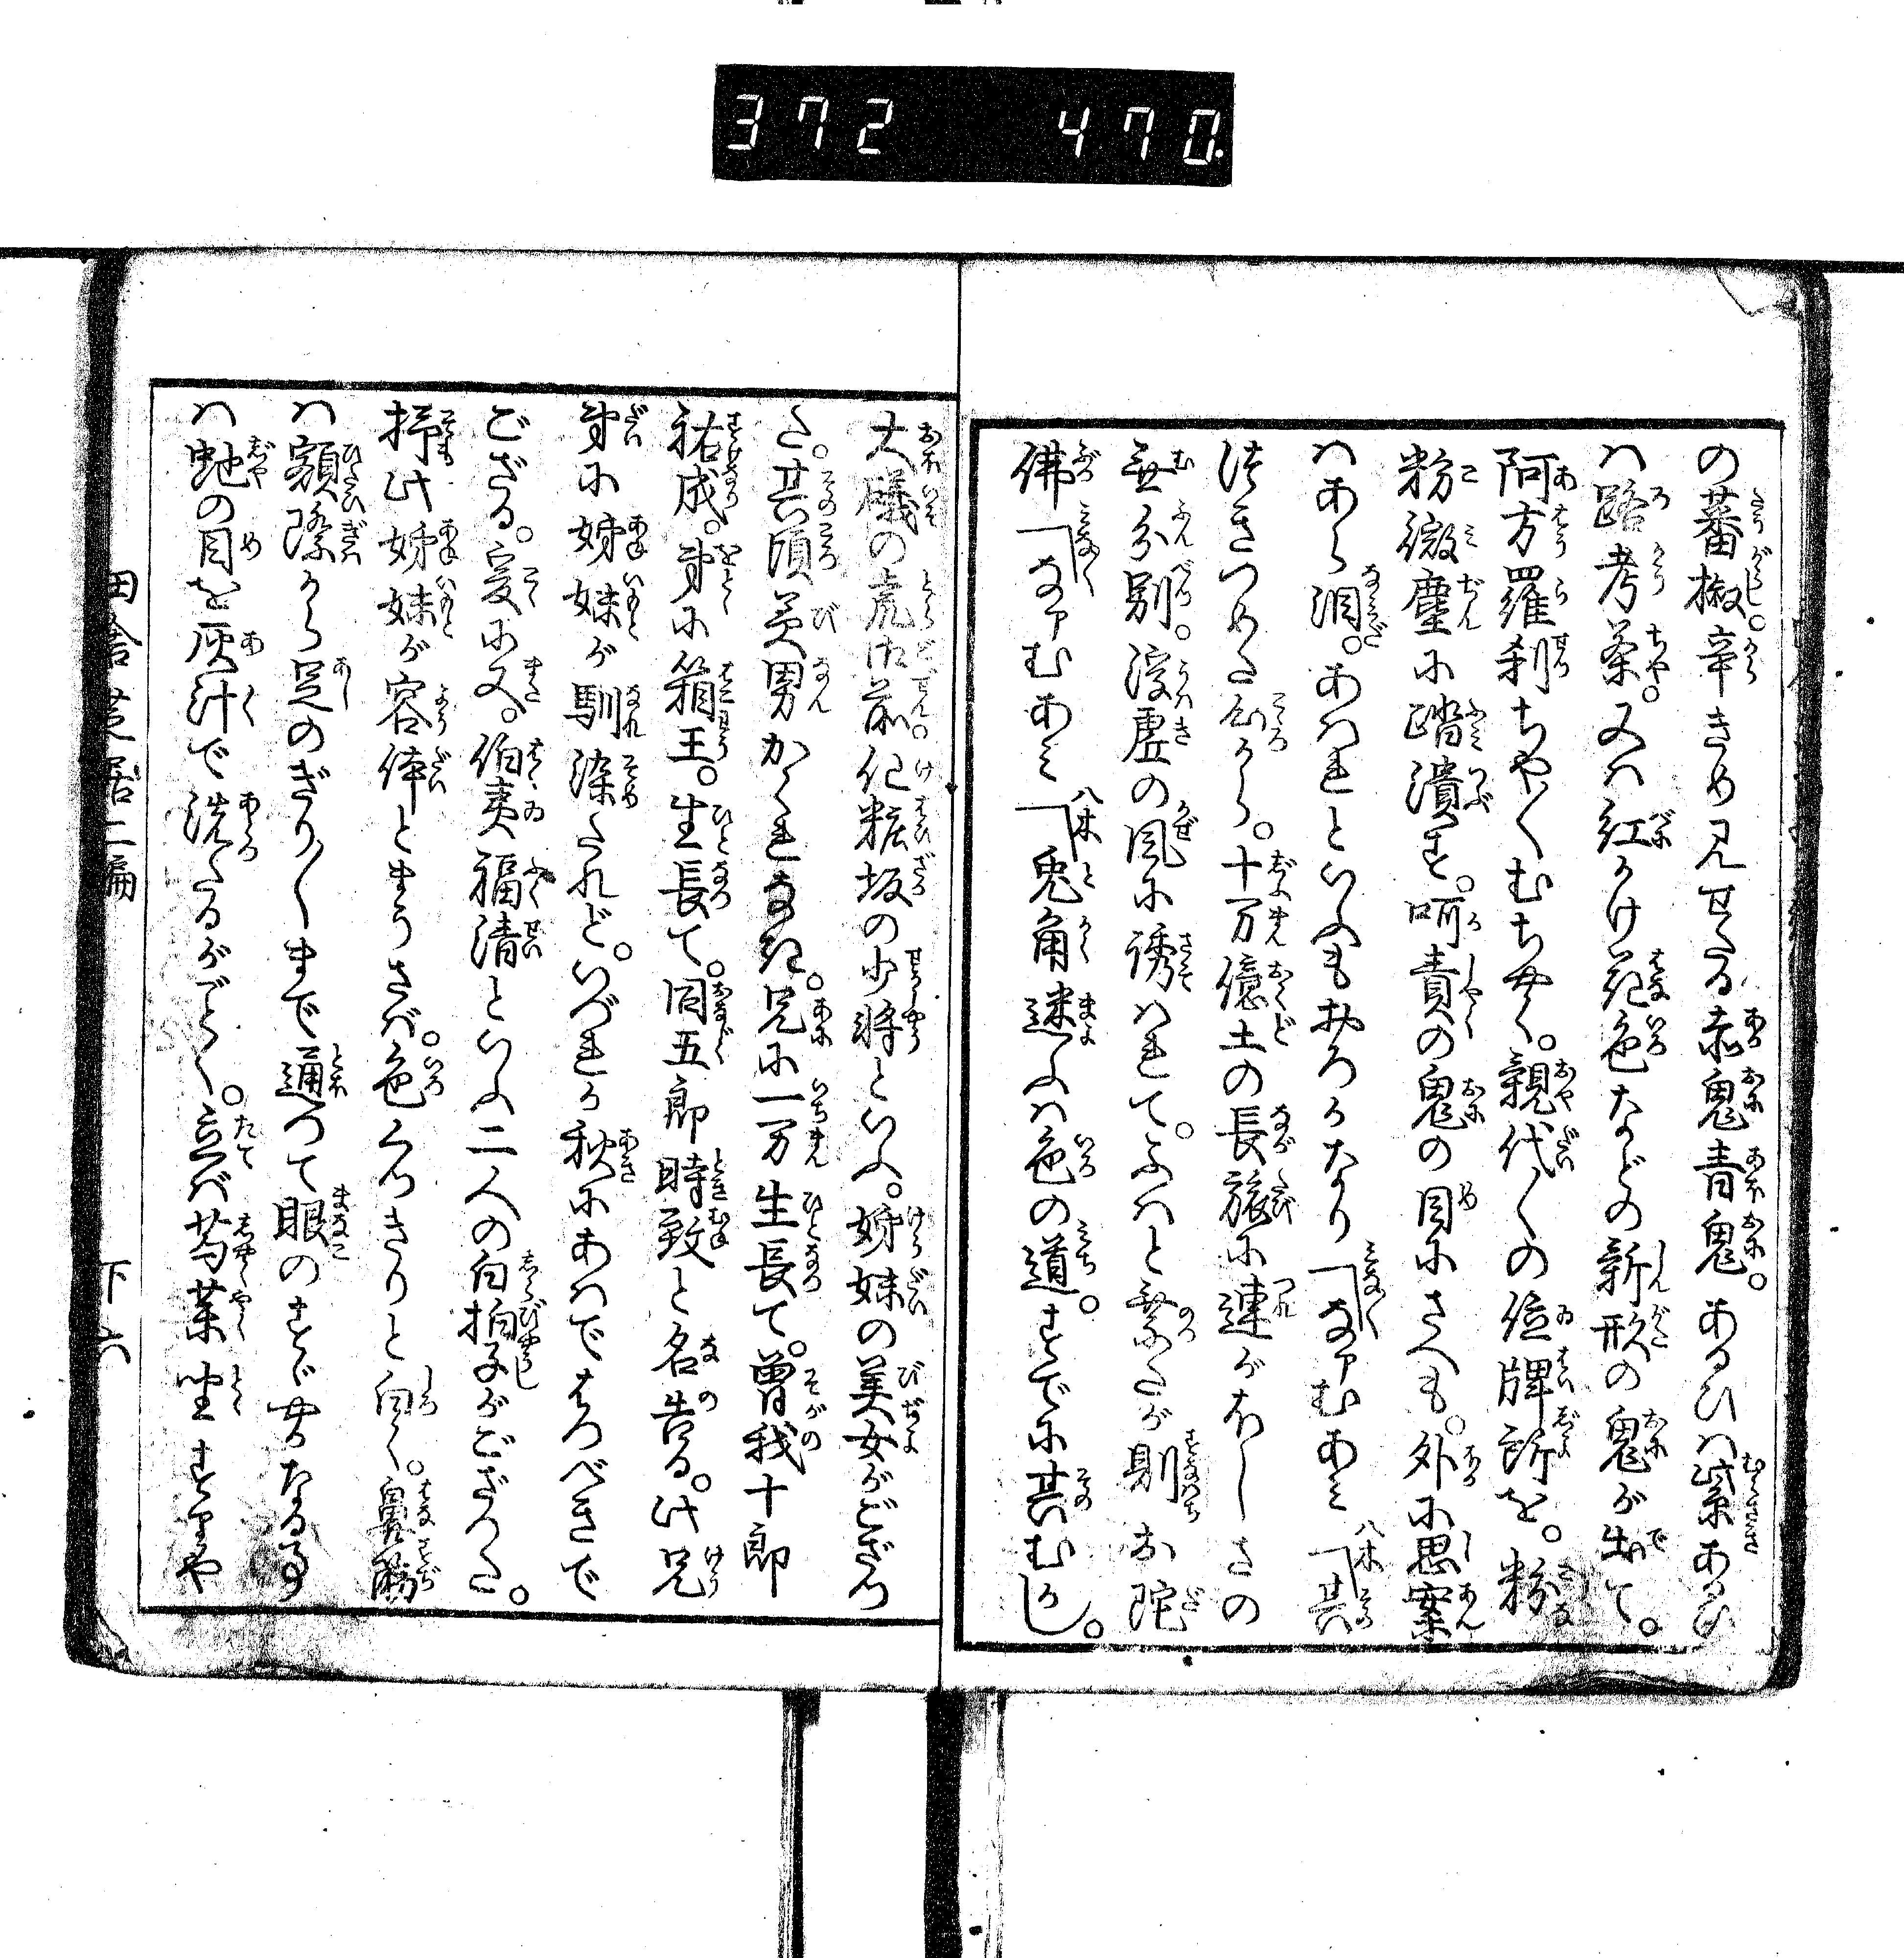 372 470.
の蕃椒。辛きめ見せたる赤鬼青鬼。あるひハ紫あるひ
ハ路考茶。又ハ紅かけ花色などの新形の鬼が出て。
阿方羅刹ちやくむちやく。親代〳〵の位牌所を。粉
粉微塵に踏潰す。呵責の鬼の目にさへも。外に思案
ハあら泪。あハれといふもおろかなり「なアむあミ「其
はきつめた心から。十万億土の長旅に連がほしさの
無分別。浮虚の風に誘ハれて。ふハと乗たが則お陀
佛「なアむあミ「兎角迷ふハ色の道。すでに其むかし。
大磯の虎御前化粧坂の少将といふ。姉妹の美女がござつ
た。其頃美男かくれなき。兄に一万生長て。曽我十郎
祐成。弟に箱王。生長て。同五郎時致と名告る。此兄
弟に姉妹が馴染たれど。いづれか秋にあハではつべきで
ござる。爰に又。伯夷福清といふ二人の白拍子がござつた。
抑此姉妹が容体とまうさバ。色くつきりと白く。鼻筋
ハ額際から足のぎり〳〵まで通つて眼のすゞやかなる事
ハ虵の目を灰汁で洗たるがごとく。立バ芍薬坐すりや
田舎芝居二編 下 六